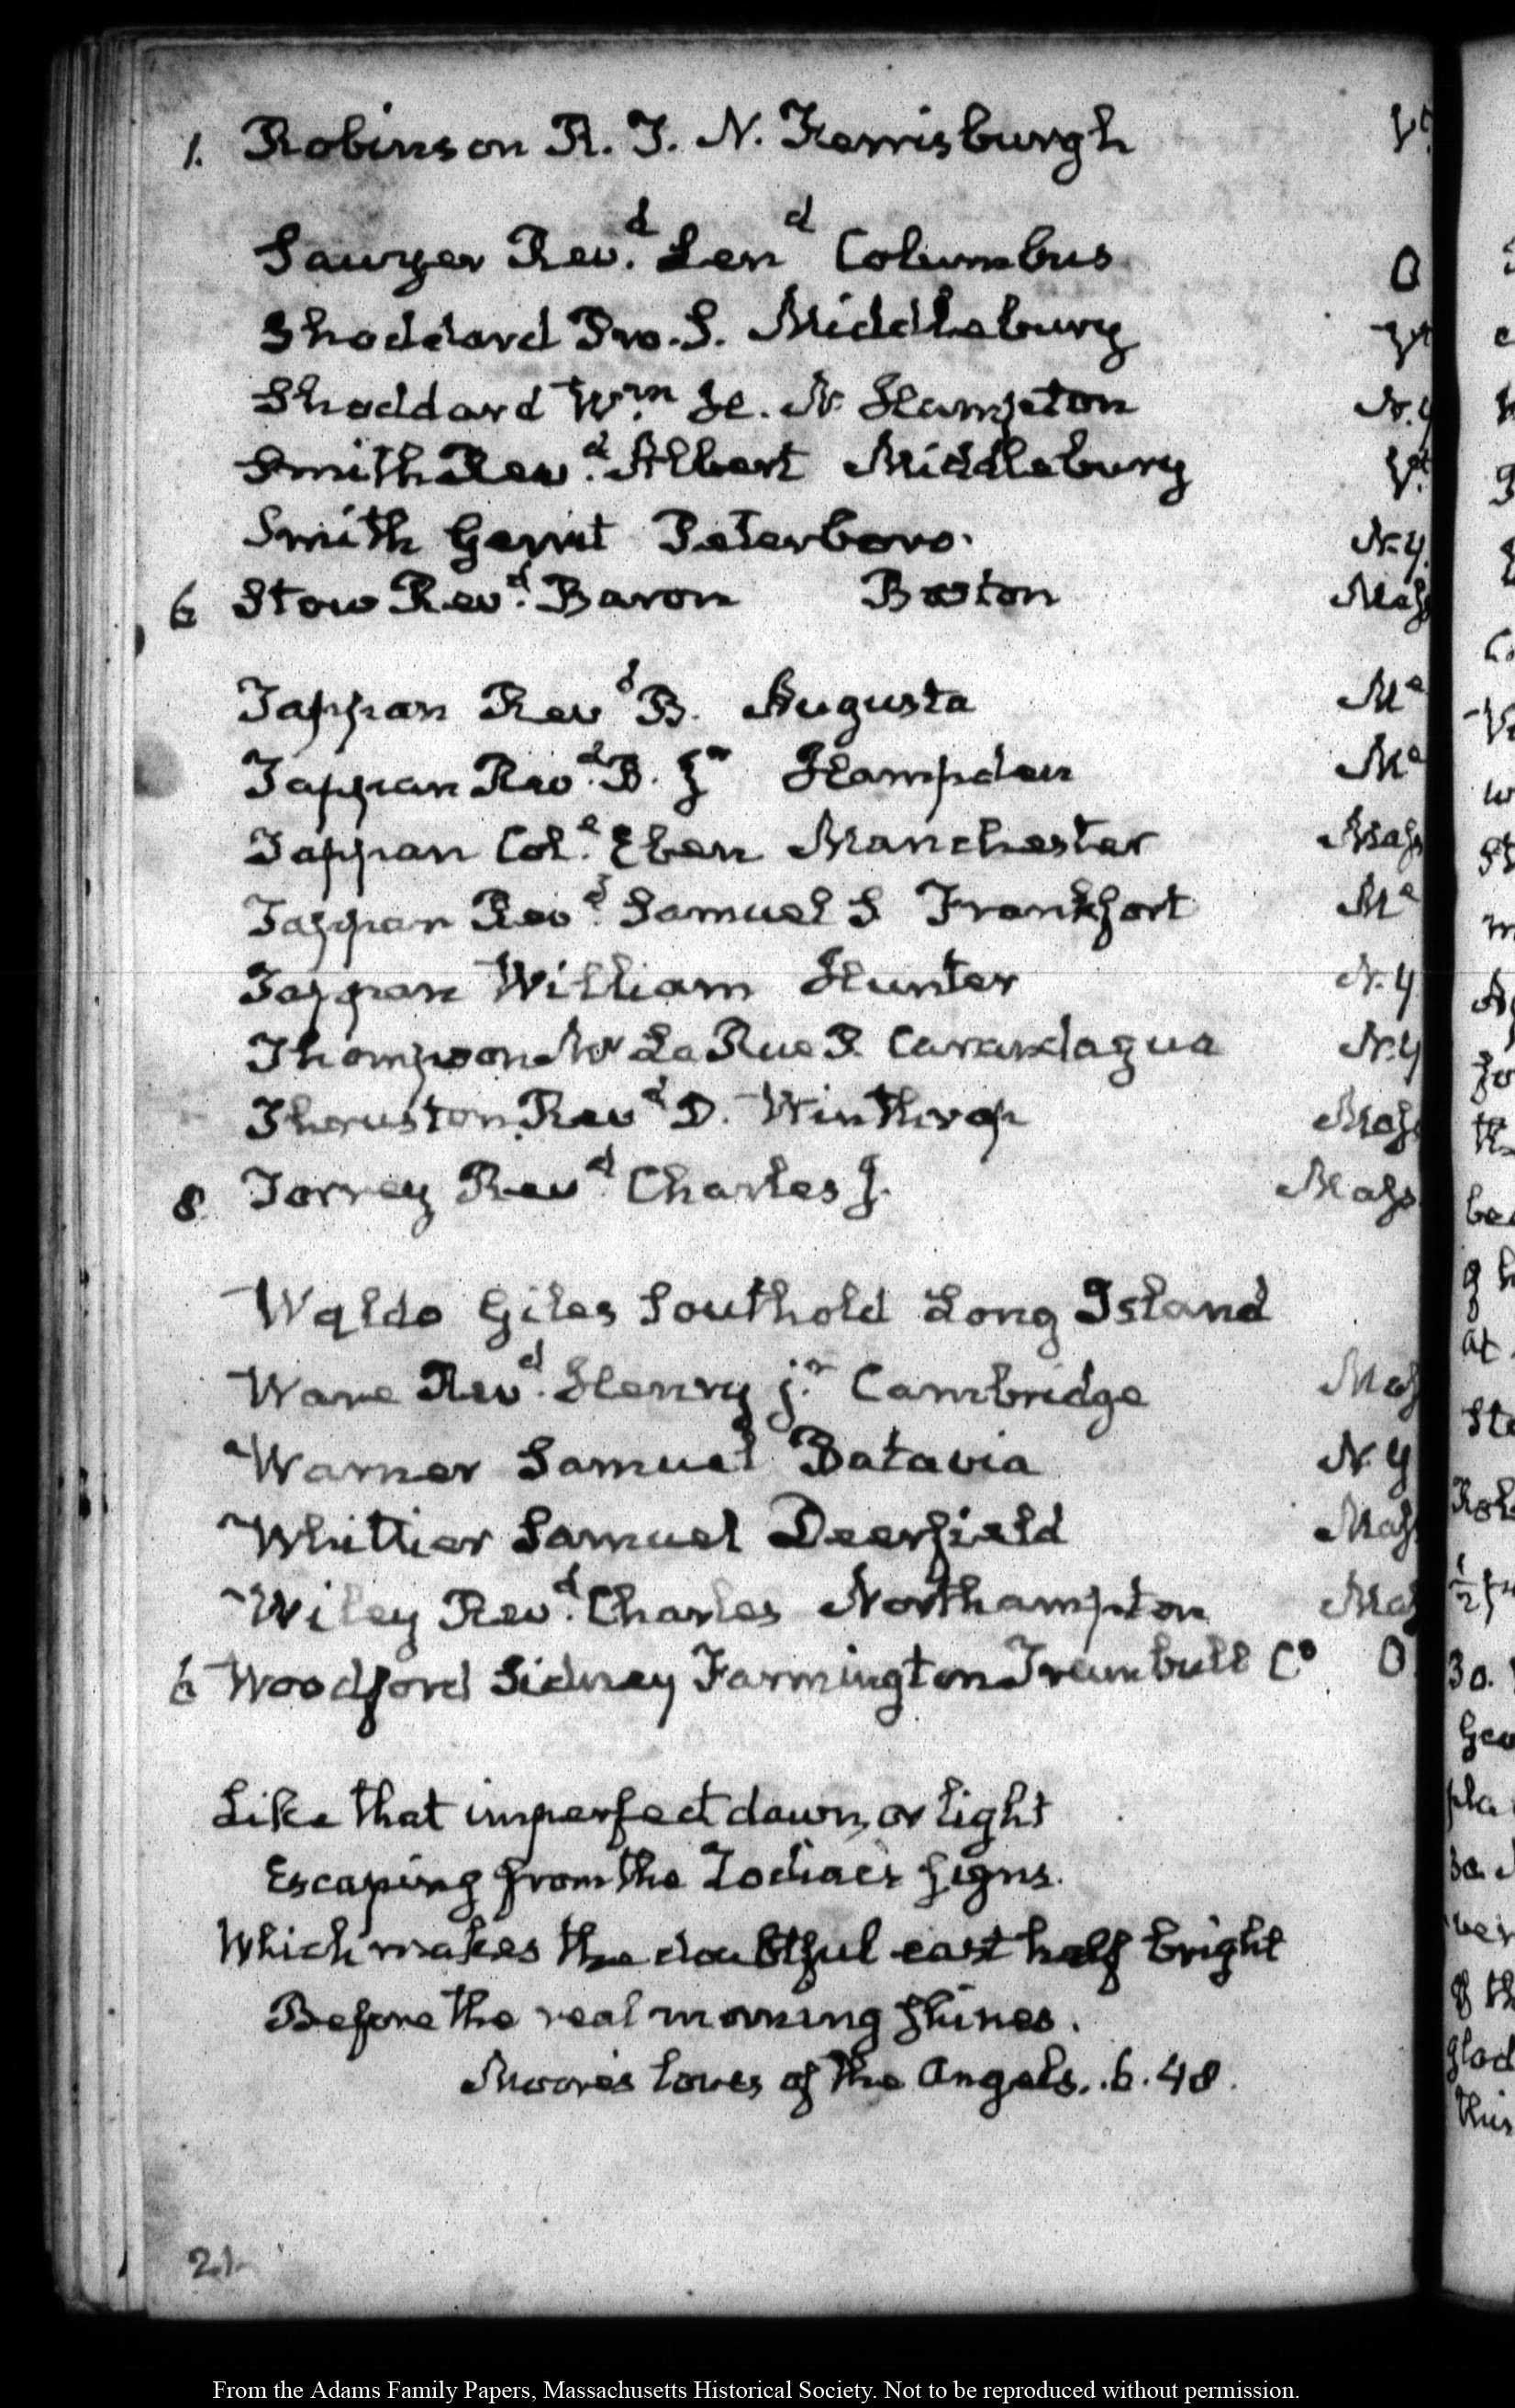 1. Robinson R. T. N. Ferrisburgh Vt.
Sawyer Revd. Lend Columbus O
Shoddard Pro. S. Middlebury Vt
Shoddard Wm. H. N. Hampton N.Y
Smith Revd. Albert Middlebury Vt.
Smith Gerrit Peterboro. N.Y.
6 Stow Revd. Baron Boston Mass
Tappan Revd B. Augusta Me
Tappan Revd. B. Jr Hampden Me
Tappan Col. Eben Manchester Mass
Tappan Revd. Samuel S. Frankfort Me
Tappan William Hunter N.Y.
Thompson Mr La Rue P. Canandagua N.Y
Thurston Revd D. Winthrop Mass
8. Torrey Revd. Charles J. Mass
Waldo Giles Southold Long Island
Ware Revd. Henry j.r Cambridge Mass
Warner Samuel Batavia N.Y
Whittier Samuel Deerfield Mass
Wiley Revd. Charles Northampton Mass
6 Woodford Sidney Farmington Trumbull Co O
Like that imperfect dawn, or light
Escaping from the Zodiac's signs.
Which makes the doubtful east half bright
Before the real morning shines.
Moore's loves of the Angels. 6. 48.
21.
From the Adams Family Papers, Massachusetts Historical Society. Not to be reproduced without permission.